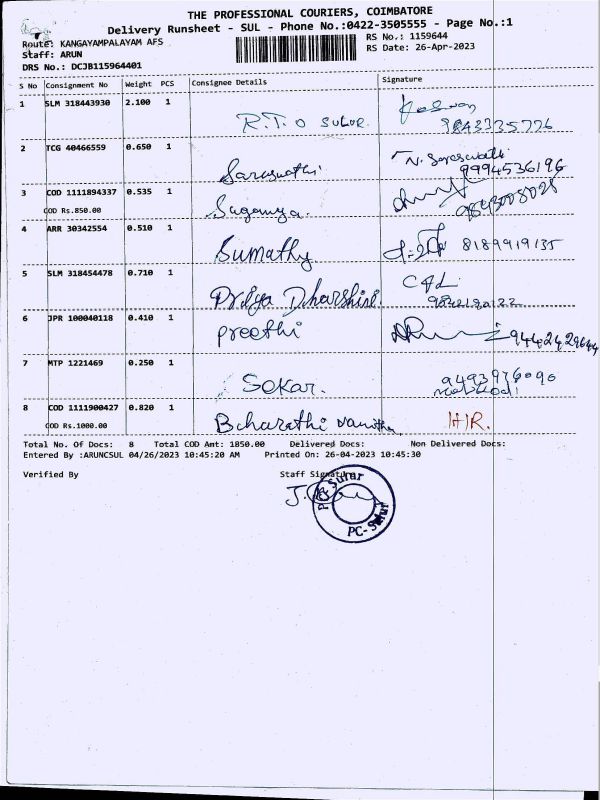 THE PROFESSIONAL COURIERS, COIMBATORE
Delivery Runsheet - SUL - Phone No.:0422-3505555 - Page No.:1
Route: KANGAYAMPALAYAM AFS
RS No.: 1159644
Staff: ARUN
RS Date: 26-Apr-2023
DRS No.: DCJB115964401
S No Consignment No Weight PCS Consignee Details Signature
1 SLM 318443930 2.100 1 R.T.O SULUR.
9843335776
2 TCG 40466559 0.650 1 Saraswathi N. Saraswathi
9994536196
3 COD 1111894337 0.535 1 Suganya.
COD Rs.850.00
4 ARR 30342554 0.510 1 Sumathy 8189919135
5 SLM 318454478 0.710 1 Pridya Dharshini.
6 JPR 100040118 0.410 1 Preethi
7 MTP 1221469 0.250 1 Sekar. 9493976090
8 COD 1111900427 0.820 1 Bharathi H/R.
COD Rs.1000.00
Total No. Of Docs: 8 Total COD Amt: 1850.00 Delivered Docs: Non Delivered Docs:
Entered By :ARUNCSUL 04/26/2023 10:45:20 AM Printed On: 26-04-2023 10:45:30
Verified By Staff Signature
PC-Sulur
PC-Sulur